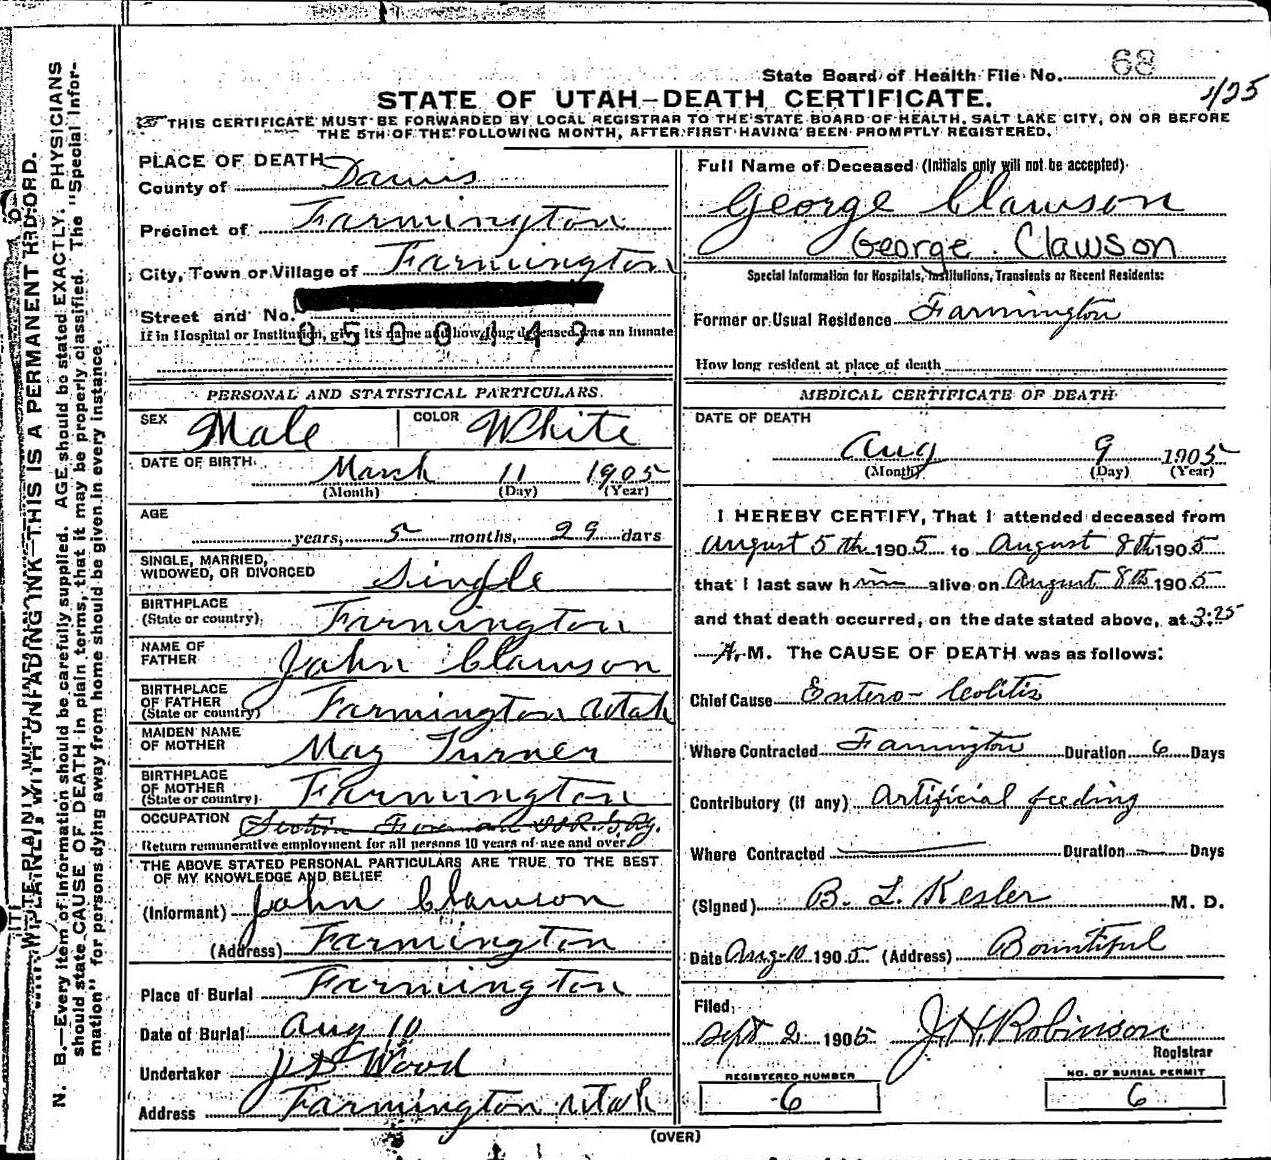 State Board of Health File No. 68
425
STATE OF UTAH—DEATH CERTIFICATE.
THIS CERTIFICATE MUST BE FORWARDED BY LOCAL REGISTRAR TO THE STATE BOARD OF HEALTH, SALT LAKE CITY, ON OR BEFORE
THE 5TH OF THE FOLLOWING MONTH, AFTER FIRST HAVING BEEN PROMPTLY REGISTERED.
WRITE PLAINLY, WITH UNFADING INK—THIS IS A PERMANENT RECORD.
N. B.—Every item of information should be carefully supplied. AGE should be stated EXACTLY. PHYSICIANS
should state CAUSE OF DEATH in plain terms, that it may be properly classified. The "Special Infor-
mation" for persons dying away from home should be given in every instance.
PLACE OF DEATH
County of Davis
Precinct of Farmington
City, Town or Village of Farmington
Street and No.
If in Hospital or Institution, give its name and how long deceased was an inmate
0500149
PERSONAL AND STATISTICAL PARTICULARS.
SEX Male COLOR White
DATE OF BIRTH March 11 1905
(Month) (Day) (Year)
AGE
years, 5 months, 29 days
SINGLE, MARRIED,
WIDOWED, OR DIVORCED Single
BIRTHPLACE
(State or country) Farmington
NAME OF
FATHER John Clawson
BIRTHPLACE
OF FATHER
(State or country) Farmington Utah
MAIDEN NAME
OF MOTHER May Turner
BIRTHPLACE
OF MOTHER
(State or country) Farmington
OCCUPATION Section Foreman
Return remunerative employment for all persons 10 years of age and over
THE ABOVE STATED PERSONAL PARTICULARS ARE TRUE TO THE BEST
OF MY KNOWLEDGE AND BELIEF
(Informant) John Clawson
(Address) Farmington
Place of Burial Farmington
Date of Burial Aug 10
Undertaker J D Wood
Address Farmington Utah
Full Name of Deceased (Initials only will not be accepted)
George Clawson
George Clawson
Special Information for Hospitals, Institutions, Transients or Recent Residents:
Former or Usual Residence Farmington
How long resident at place of death
MEDICAL CERTIFICATE OF DEATH
DATE OF DEATH
Aug 9 1905
(Month) (Day) (Year)
I HEREBY CERTIFY, That I attended deceased from
August 5th 1905 to August 8th 1905
that I last saw him alive on August 8th 1905
and that death occurred, on the date stated above, at 3:25
A. M. The CAUSE OF DEATH was as follows:
Chief Cause Entero-Colitis
Where Contracted Farmington Duration 6 Days
Contributory (if any) Artificial feeding
Where Contracted Duration Days
(Signed) B. L. Kesler M. D.
Date Aug-10 1905 (Address) Bountiful
Filed,
Sept 2 1905 J. H. Robinson
Registrar
REGISTERED NUMBER NO. OF BURIAL PERMIT
6 6
(OVER)